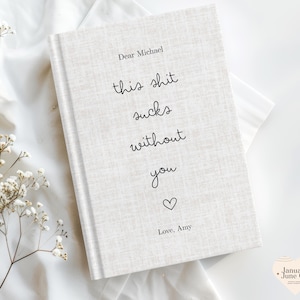 Dear Michael
this shit
sucks
without
you
Love, Amy